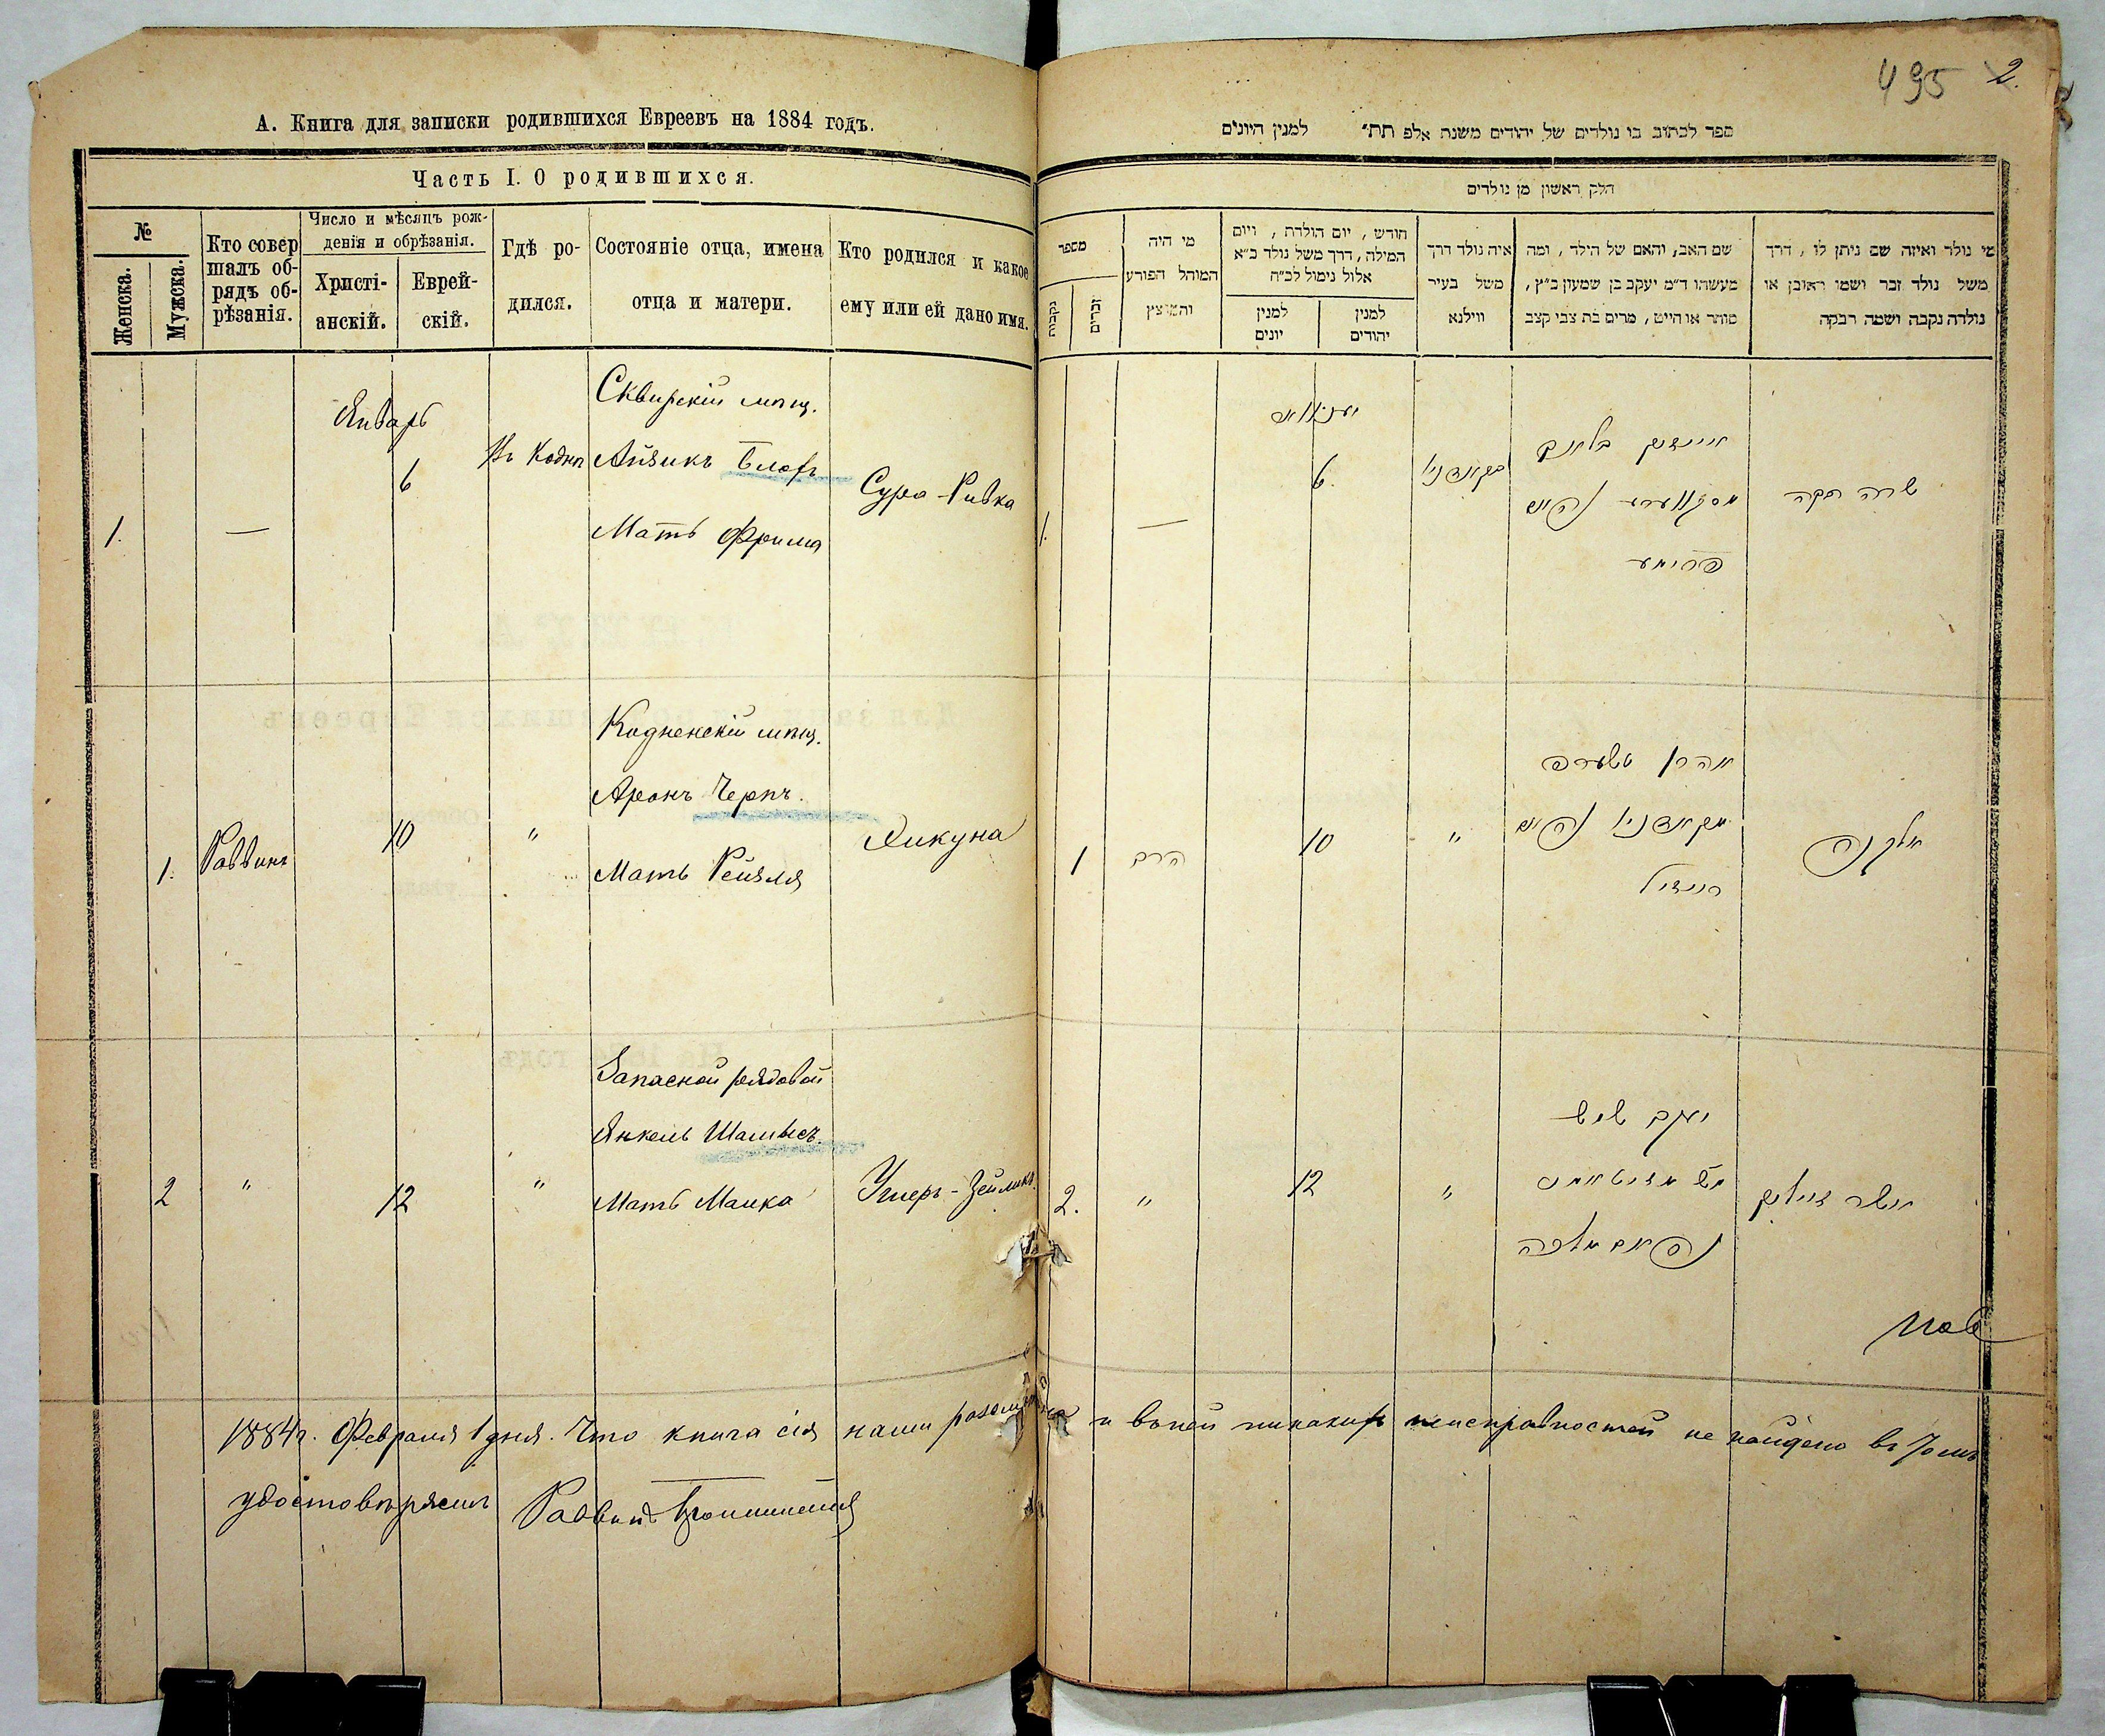 А. Книга для записки родившихся Евреевъ на 1884 годъ.
Часть I. О родившихся.
№
Женска.
Мужска.
Кто совер
шалъ об-
рядъ об-
рѣзанія.
Число и мѣсяцъ рож-
денія и обрѣзанія.
Христі-
анскій.
Еврей-
скій.
Гдѣ ро-
дился.
Состояніе отца, имена
отца и матери.
Кто родился и какое
ему или ей дано имя.
1.
—
Январь
6
Въ Коднѣ
Сквирскій мѣщ.
Айзикъ
Мать Фрима
Сура-Ривка
1.
Раввинъ
10
"
Кодненскій мѣщ.
Аронъ Черпъ.
Мать Рейзля
2
"
12
"
Запасной рядовой
Янкель
Мать Малка
1884 г. Февраля 1 дня. Что книга сія нами
удостовѣряемъ Раввинъ
495 2.
ספר לכתוב בו נולדים של יהודים משנת אלפ תת״ למנין היונים
חלק ראשון מן נולדים
מספר
נקבות
זכרים
מי היה
המוהל הפורע
והמוצץ
חודש, יום הולדת, ויום
המילה, דרך משל נולד כ״א
אלול נימול לכ״ח
למנין
יונים
למנין
יהודים
איה נולד דרך
משל בעיר
ווילנא
שם האב, והאם של הילד, ומה
מעשהו ד״מ יעקב בן שמעון כ״ץ,
סוחר או חייט, מרים בת צבי קצב
מי נולד ואיזה שם ניתן לו, דרך
משל נולד זכר ושמו ראובן או
נולדה נקבה ושמה רבקה
1.
—
6.
פרימע
שרה רבקה
1
הרב
10
"
אהרן
רייזיל
2.
"
12
"
יעקב
אשר זעליק
и въ ней никакихъ неисправностей не найдено въ томъ